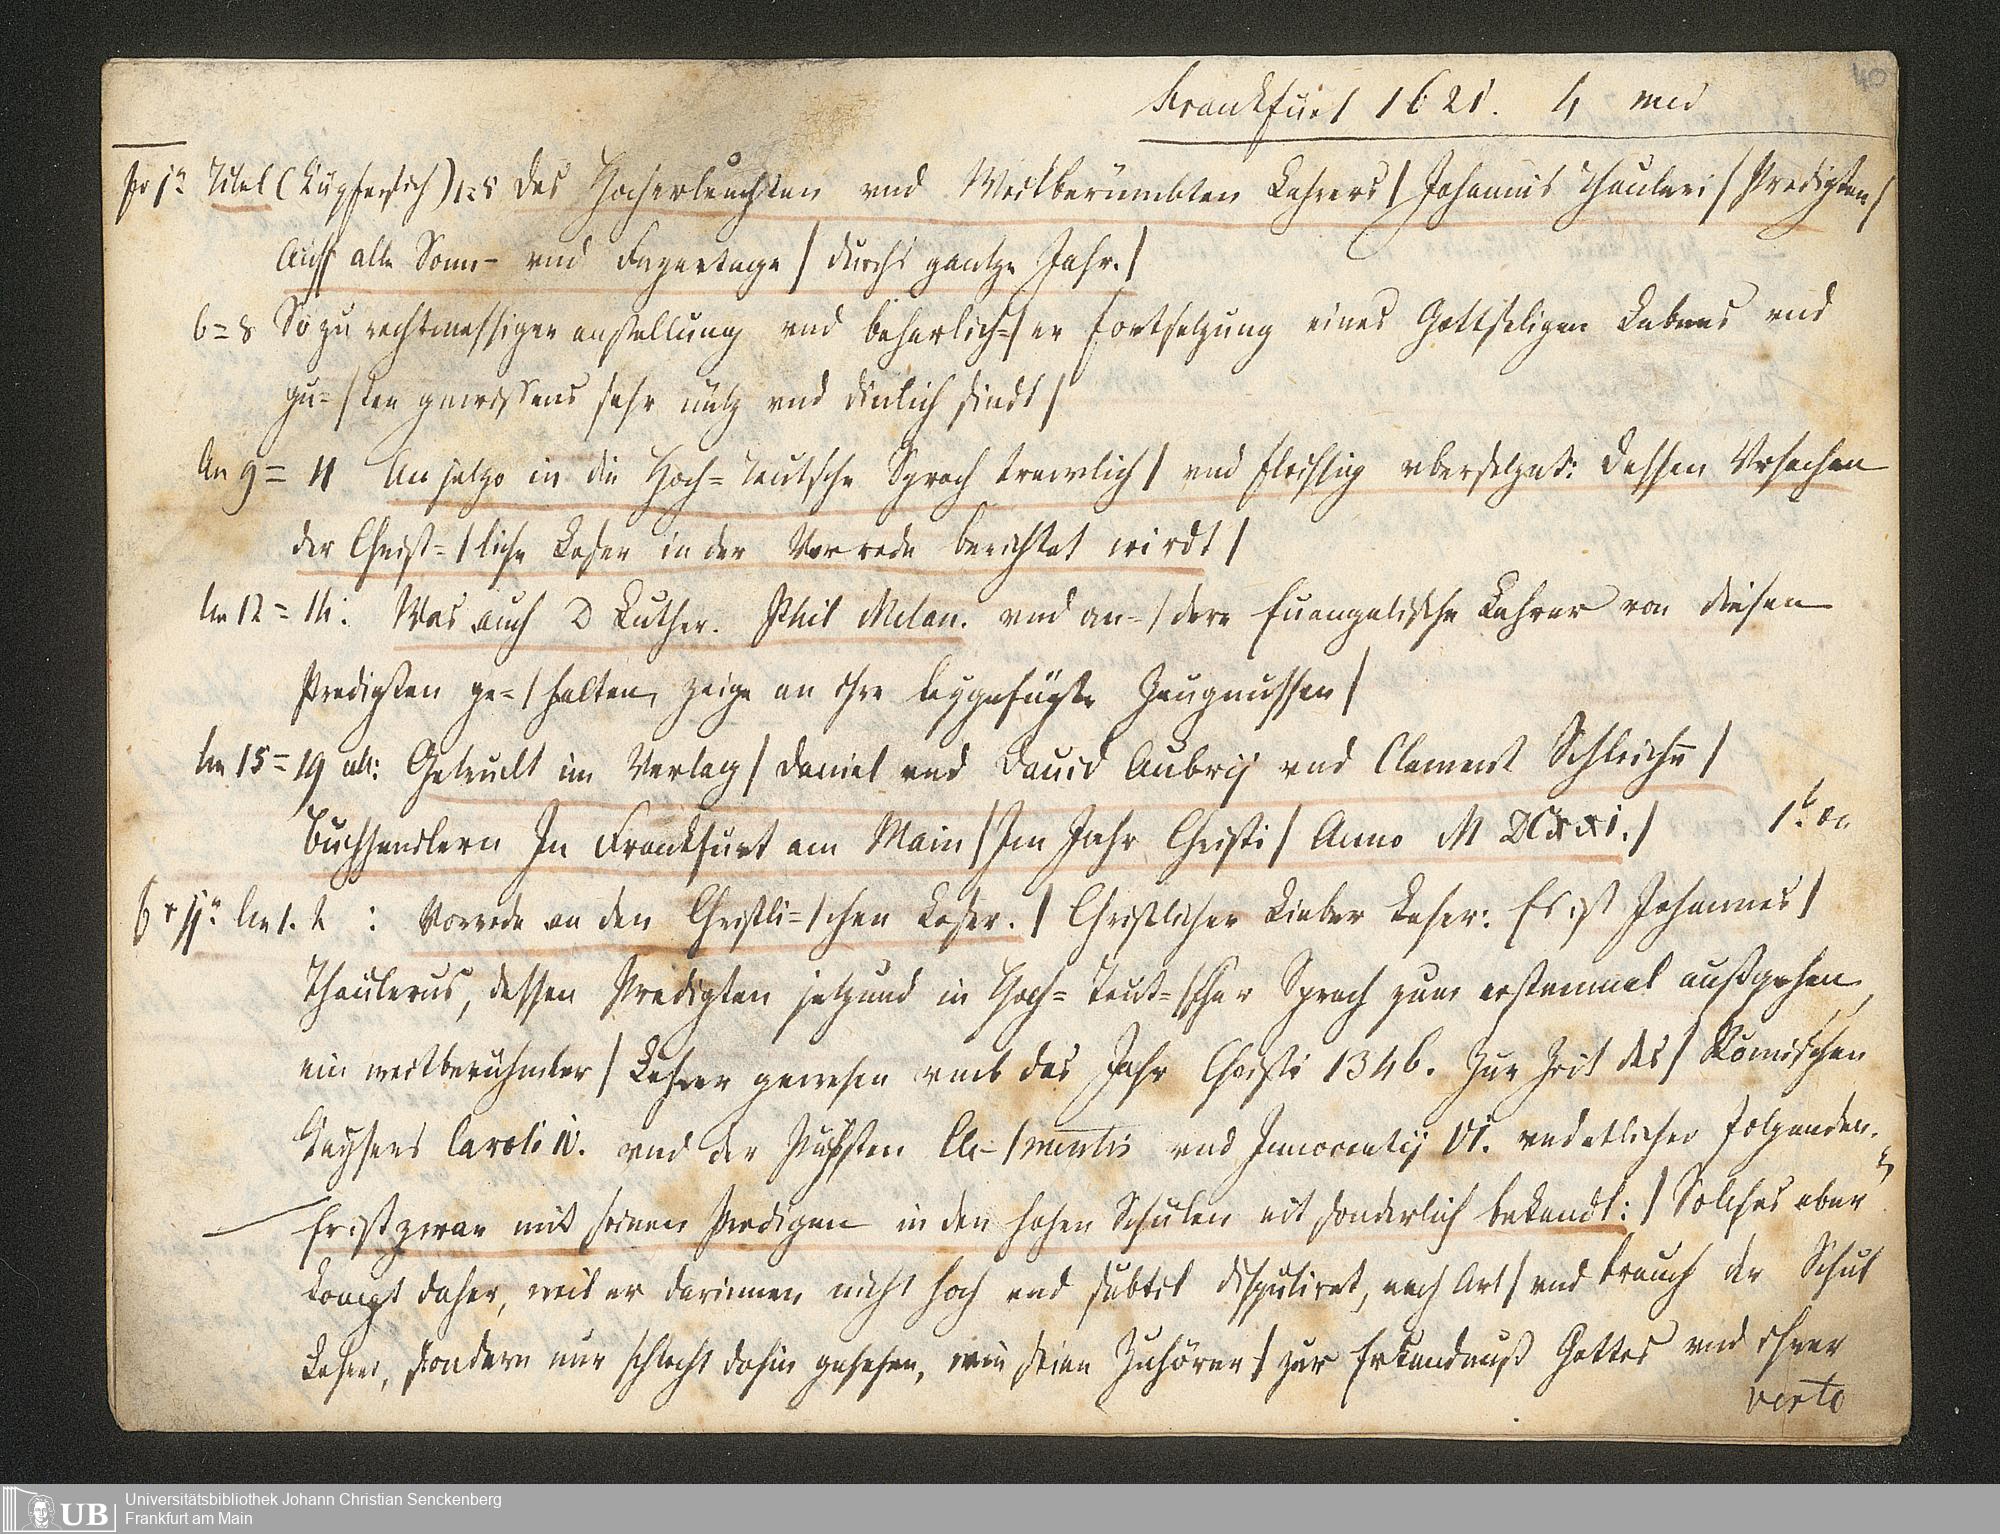 40
Frankfurt 1621. 4 med
1a Titel (Kupferstich) 1=5 Des Hocherleuchten vnd Weitberümbten Lehrers / Johannis Thauleri / Predigten /
Auff alle Sonn- vnd Feyertage / durchs gantze Jahr. /
6=8 So zu rechtmessiger anstellung vnd beharlich=/er fortsetzung eines Gottseligen Lebens vnd
gu=/ten gewissens sehr nütz vnd dinlich sindt /
9=11 An jetzo in die Hoch=Teutsche Sprach trewlich / vnd fleissig vbersetzet: Dessen Vrsachen
der Christ=/liche Leser in der Vorrede berichtet wirdt /
12=14: Was auch D Luther. Phil Melan. vnd an=/dere Euangelische Lehrer von diesen
Predigten ge=/halten, zeige an ihre beygefügte Zeugnussen /
15=19 Getruckt im Verlag / Daniel vnd Dauid Aubrij vnd Clement Schleichen /
Buchhendlern In Franckfurt am Main / Im Jahr Christi / Anno M DCXXI. /
1. 2 : Vorrede an den Christli=/chen Leser. / Christlicher Lieber Leser: Es ist Johannes /
Thaulerus, dessen Predigten jetzund in Hoch=Teut=/scher Sprach zum erstenmal außgehen,
ein weitberühmbter / Lehrer gewesen vmb das Jahr Christi 1346. Zur Zeit des / Römischen
Kaysers Caroli IV. vnd der Päpsten Cle-/mentis vnd Innocentij VI. vnd etlicher folgenden.
Er ist zwar mit seinen Predigen in den hohen Schulen nit sonderlich bekandt: / Solches aber
kompt daher, weil er darinnen nicht hoch vnd subtil disputiret, nach Art / vnd brauch der Schul
Lehrer, sondern nur schlecht dahin gesehen, wie seine Zuhörer / zur Erkandnuß Gottes vnd ihrer
verte
UB
Universitätsbibliothek Johann Christian Senckenberg
Frankfurt am Main